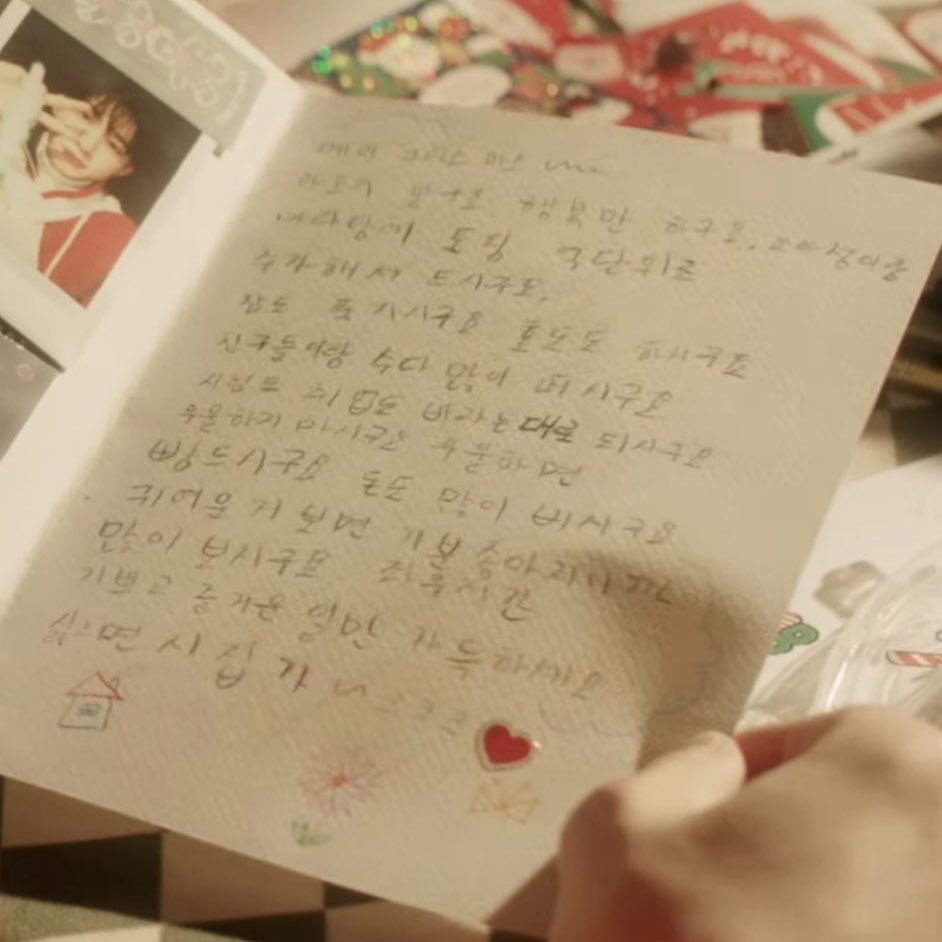 메리 크리스마스
아프지 말구요, 행복만 하구요,
토핑 9단위로
추가해서 드시구요,
잠도 푹 자시구요 효도도 하시구요
친구들이랑 수다 많이 떠시구요
시험도 취업도 바라는대로 되시구요
우울하지 마시구요 우울하면
빵드시구요 돈도 많이 버시구요
귀여운 거 보면 기분 좋아지니까
많이 보시구요 하루시간
기쁘고 즐거운 일만 가득하세요
싫으면 시집가